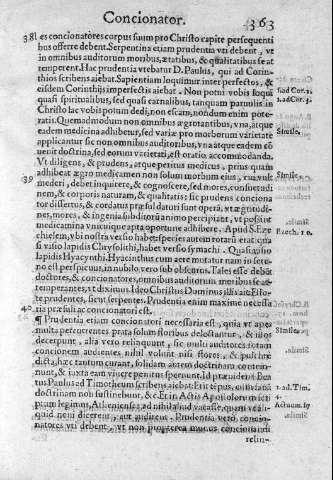 Concionator. 363
38 les concionatores corpus suum pro Christo capite persequenti
bus offerre debent. Serpentina etiam prudentia vti debent, vt
in omnibus auditorum moribus, ætatibus, & qualitatibus se at
temperent. Hac prudentia vtebatur D. Paulus, qui ad Corin-
thios scribens aiebat. Sapientiam loquimur inter perfectos, &
eisdem Corinthijs imperfectis aiebat. Non potui vobis loqui
quasi spiritualibus, sed quasi carnalibus, tanquam paruulis in
Christo lac vobis potum dedi, non escam, nondum enim pote
ratis. Quemadmodum non omnibus ægrotantibus, vna, atque
eadem medicina adhibetur, sed variæ pro morborum varietate
applicantur sic non omnibus auditoribus, vna atque eadem cō
uenit doctrina, sed eorum varietati, est oratio accommodanda.
Vt diligens, & prudens, atque peritus medicus, prius quam
adhibeat ægro medicamen non solum morbum eius, cui vult
39 mederi, debet inquirere, & cognoscere, sed mores, consuetudi
nem, & corporis naturam, & qualitates: sic prudens conciona
tor dissertus, & cordatus præsul daturi sunt operā, vt ægritudi-
nes, mores, & ingenia subditorū animo percipiant, vt possint
medicamina vnicuique apta oportune adhibere. Apud S. Eze
chielem, vbi nostra versio habet: species autem rotarū erat qua
si visio lapidis Chrysolithi, habet versio Symachi. Quasi aspectus
lapidis Hyacynthi. Hyacinthus cum aere mutatur nam in sere-
no est perspicuus, in nubilo vero sub obscurus. Tales esse debēt
doctores, & concionatores, omnibus auditorum moribus se at-
temperantes, vt diximus. Ideo Christus Dominus illis ait: Esto-
te prudentes, sicut serpentes. Prudentia enim maxime necessa
40 ria præsuli ac concionatori est.
¶ Prudentia etiam concionatori necessaria est, quia vt apes
multa percurrentes prata solum floribus delectantur, & illos
decerpunt, alia vero relinquunt, sic multi auditores istam
concionem audientes nihil volunt nisi flores, & pulchre
dicta, hæc tantum curant, solidam autem doctrinam contem-
nunt, & iuxta eam viuere penitus spernunt. Id prævidens Bea-
tus Paulus ad Timotheum scribens aiebat: Erit tépus, cum sanā
doctrinam non sustinebunt, & c. Et in Actis Apostolorum scri
ptum legimus, Athenienses ad nihil aliud vacasse, quam vt ali-
quid noui dicerent, aut audirent. Prudentia vero concio-
natores vti debent, vt non propterea munus concionandi
relin-
1. ad Cor. 2.
1. ad Cor. 3.
Simile.
Simile.
Ezech. 10.
Simile.
2. ad Tim.
4.
Actuum. 17
Simile.